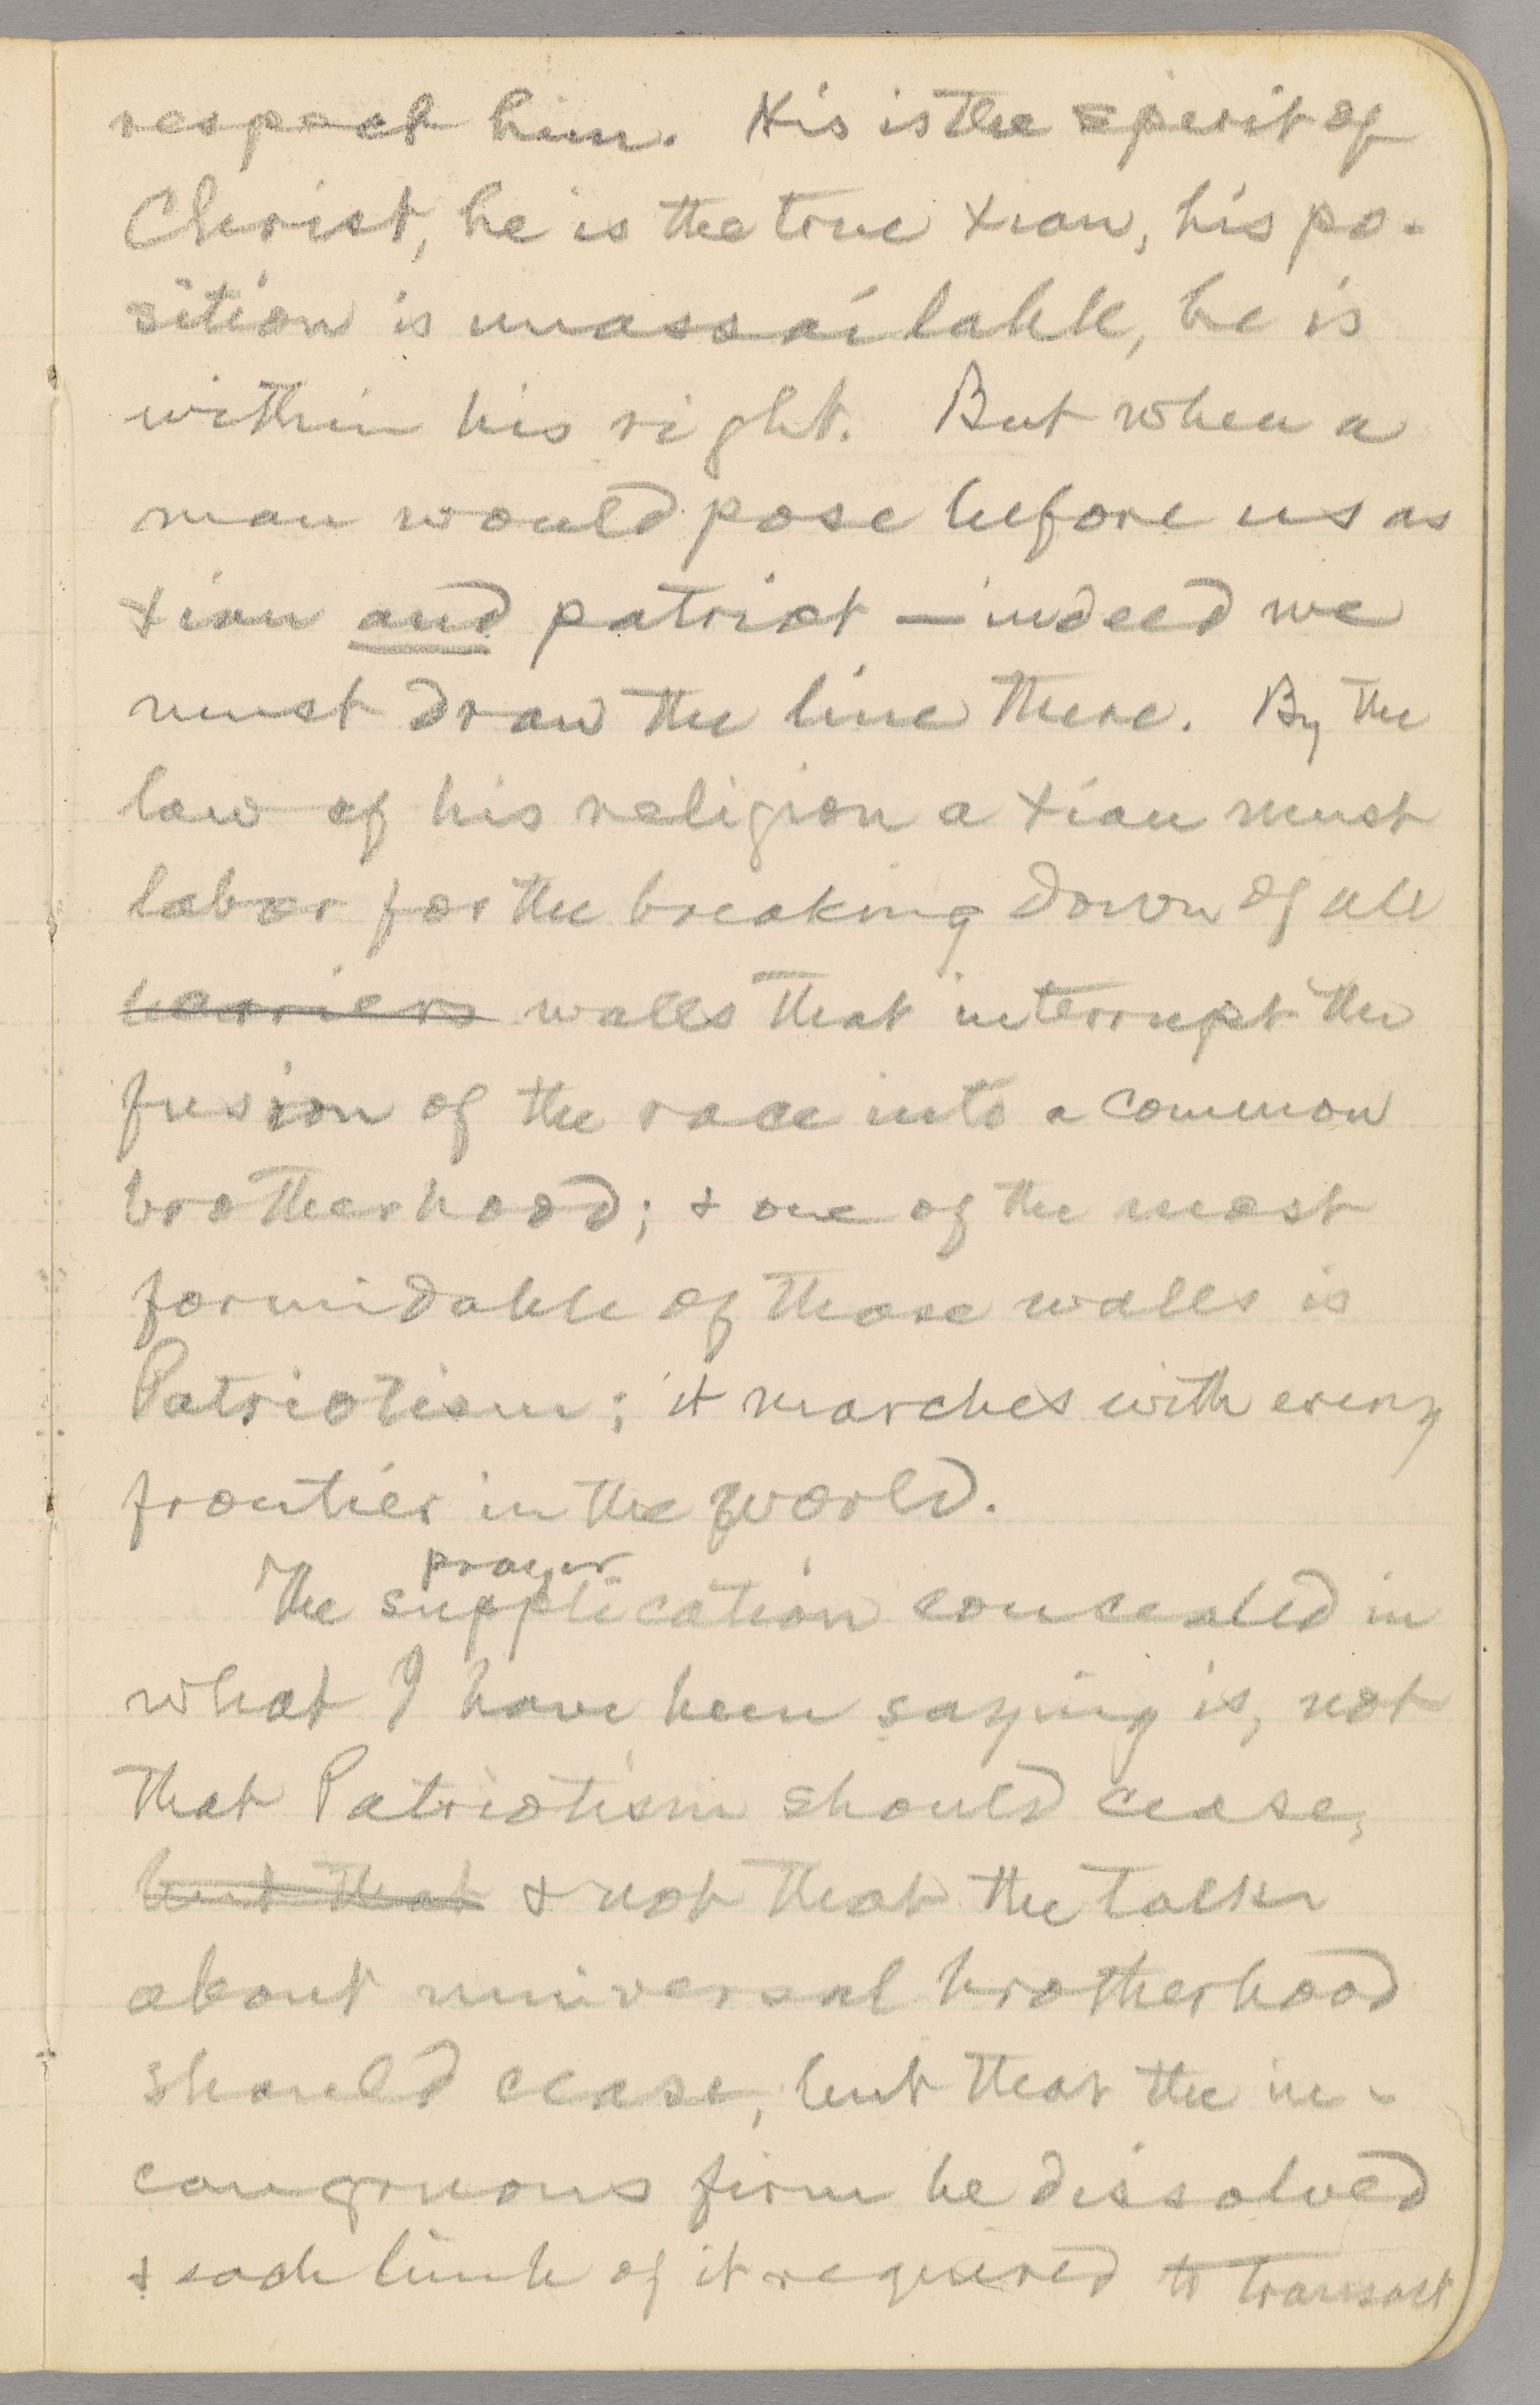 respect him. His is the spirit of
Christ, he is the true Xian, his po-
sition is unassailable, he is
within his right. But when a
man would pose before us as
Xian and patriot — indeed we
must draw the line there. By the
law of his religion a Xian must
labor for the breaking down of all
barriers walls that interrupt the
fusion of the race into a common
brotherhood; & one of the most
formidable of those walls is
Patriotism; it marches with every
frontier in the world.
prayer
The supplication concealed in
what I have been saying is, not
that Patriotism should cease,
but that & not that the talk
about universal brotherhood
should cease, but that the in-
congruous firm be dissolved
& each limb of it required to transact